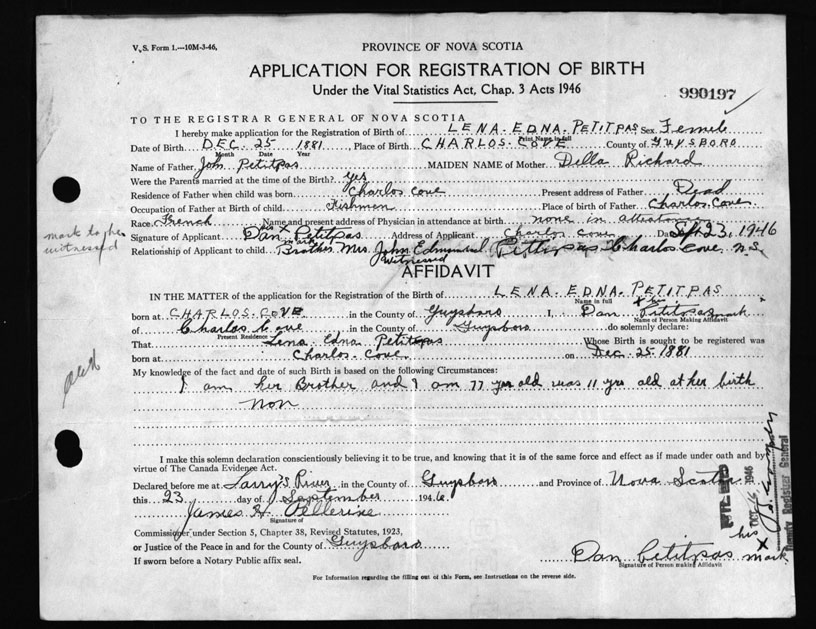 V. S. Form 1.—10M-3-46.
PROVINCE OF NOVA SCOTIA
APPLICATION FOR REGISTRATION OF BIRTH
Under the Vital Statistics Act, Chap. 3 Acts 1946
990197
TO THE REGISTRAR GENERAL OF NOVA SCOTIA
I hereby make application for the Registration of Birth of LENA. EDNA. PETITPAS Sex Female
Print Name in full
Date of Birth DEC. 25 1881, Place of Birth CHARLOS-COVE County of GUYSBORO
Month Date Year
Name of Father John Petitpas MAIDEN NAME of Mother Della Richard
Were the Parents married at the time of the Birth? yes
Residence of Father when child was born Charlos Cove Present address of Father Dead
Occupation of Father at Birth of child Fishmen Place of birth of Father Charlos Cove
Race French Name and present address of Physician in attendance at birth none in attendance
mark to be witnessed
Signature of Applicant Dan his x mark Petitpas Address of Applicant Charlos Cove Date Sept 23, 1946
Relationship of Applicant to child Brother Mrs. John Edmund Petitpas Charlos Cove N.S.
Witnessed
AFFIDAVIT
IN THE MATTER of the application for the Registration of the Birth of LENA. EDNA. PETITPAS
Name in full
born at CHARLOS-COVE in the County of Guysboro I, Dan Petitpas x his mark
Name of Person Making Affidavit
of Charlos Cove in the County of Guysboro do solemnly declare:
Present Residence
That Lena Edna Petitpas Whose Birth is sought to be registered was
born at Charlos-Cove on Dec-25-1881
My knowledge of the fact and date of such Birth is based on the following Circumstances:
I am her Brother and I am 77 yrs old was 11 yrs old at her birth
non
I make this solemn declaration conscientiously believing it to be true, and knowing that it is of the same force and effect as if made under oath and by
virtue of The Canada Evidence Act.
Declared before me at Larry's River in the County of Guysboro and Province of Nova Scotia
this 23 day of September 1946.
James H Pellerine
Signature of
Commissioner under Section 5, Chapter 38, Revised Statutes, 1923,
or Justice of the Peace in and for the County of Guysboro
If sworn before a Notary Public affix seal.
Dan Petitpas his x mark
Signature of Person making Affidavit
1946
Deputy Registrar General
For Information regarding the filling out of this Form, see Instructions on the reverse side.